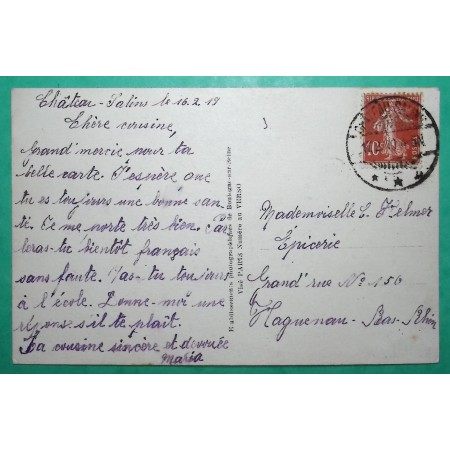 Château-Salins le 16.2.19
Chère cousine,
Grand'merci pour ta
belle carte. J'espère que
tu es toujours une bonne san-
té. Ce me porte très bien. Par
leras-tu bientôt français
sans faute. Vas-tu toujours
à l'école. Donne-moi une
réponse s'il te plait.
Ta cousine sincère et dévouée
Maria
Etablissements Photographiques de Boulogne-sur-Seine
VISÉ PARIS Numéro au VERSO
10
Mademoiselle L. Helmer
Epicerie
Grand'rue No 156
Haguenau - Bas-Rhin